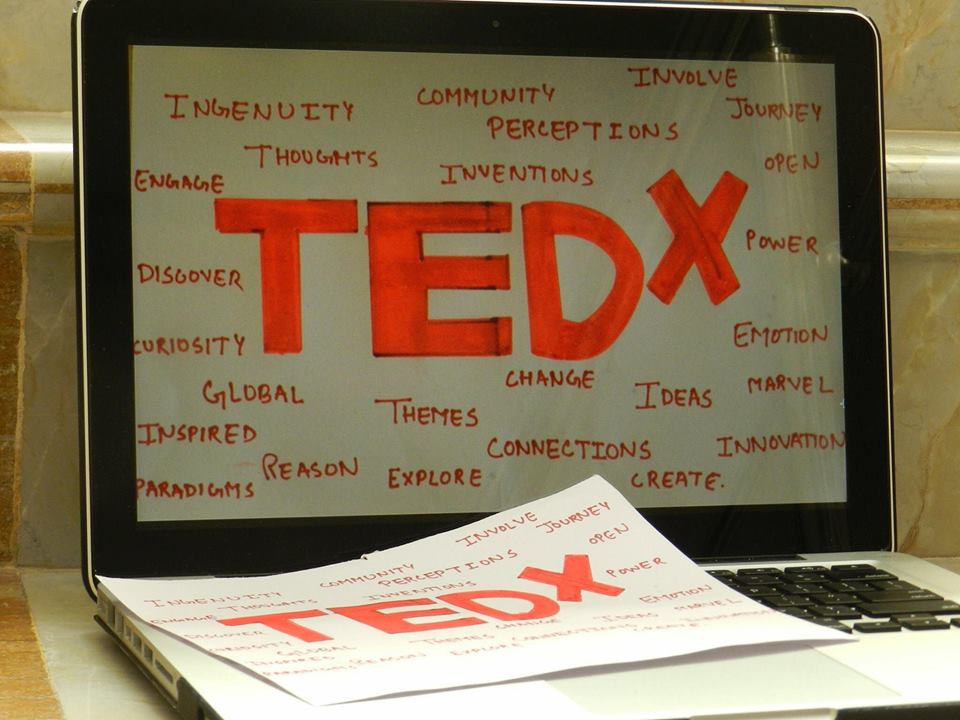 INVOLVE
INGENUITY COMMUNITY JOURNEY
PERCEPTIONS
THOUGHTS OPEN
ENGAGE INVENTIONS
TEDX
POWER
DISCOVER
CURIOSITY EMOTION
CHANGE
GLOBAL THEMES IDEAS MARVEL
INSPIRED CONNECTIONS INNOVATION
REASON EXPLORE CREATE.
PARADIGMS
INVOLVE JOURNEY
COMMUNITY PERCEPTIONS OPEN
INGENUITY THOUGHTS INVENTIONS POWER
ENGAGE TEDX
DISCOVER CHANGE IDEAS EMOTION
CURIOSITY GLOBAL THEMES MARVEL
INSPIRED REASON EXPLORE CONNECTIONS CREATE INNOVATION
PARADIGMS